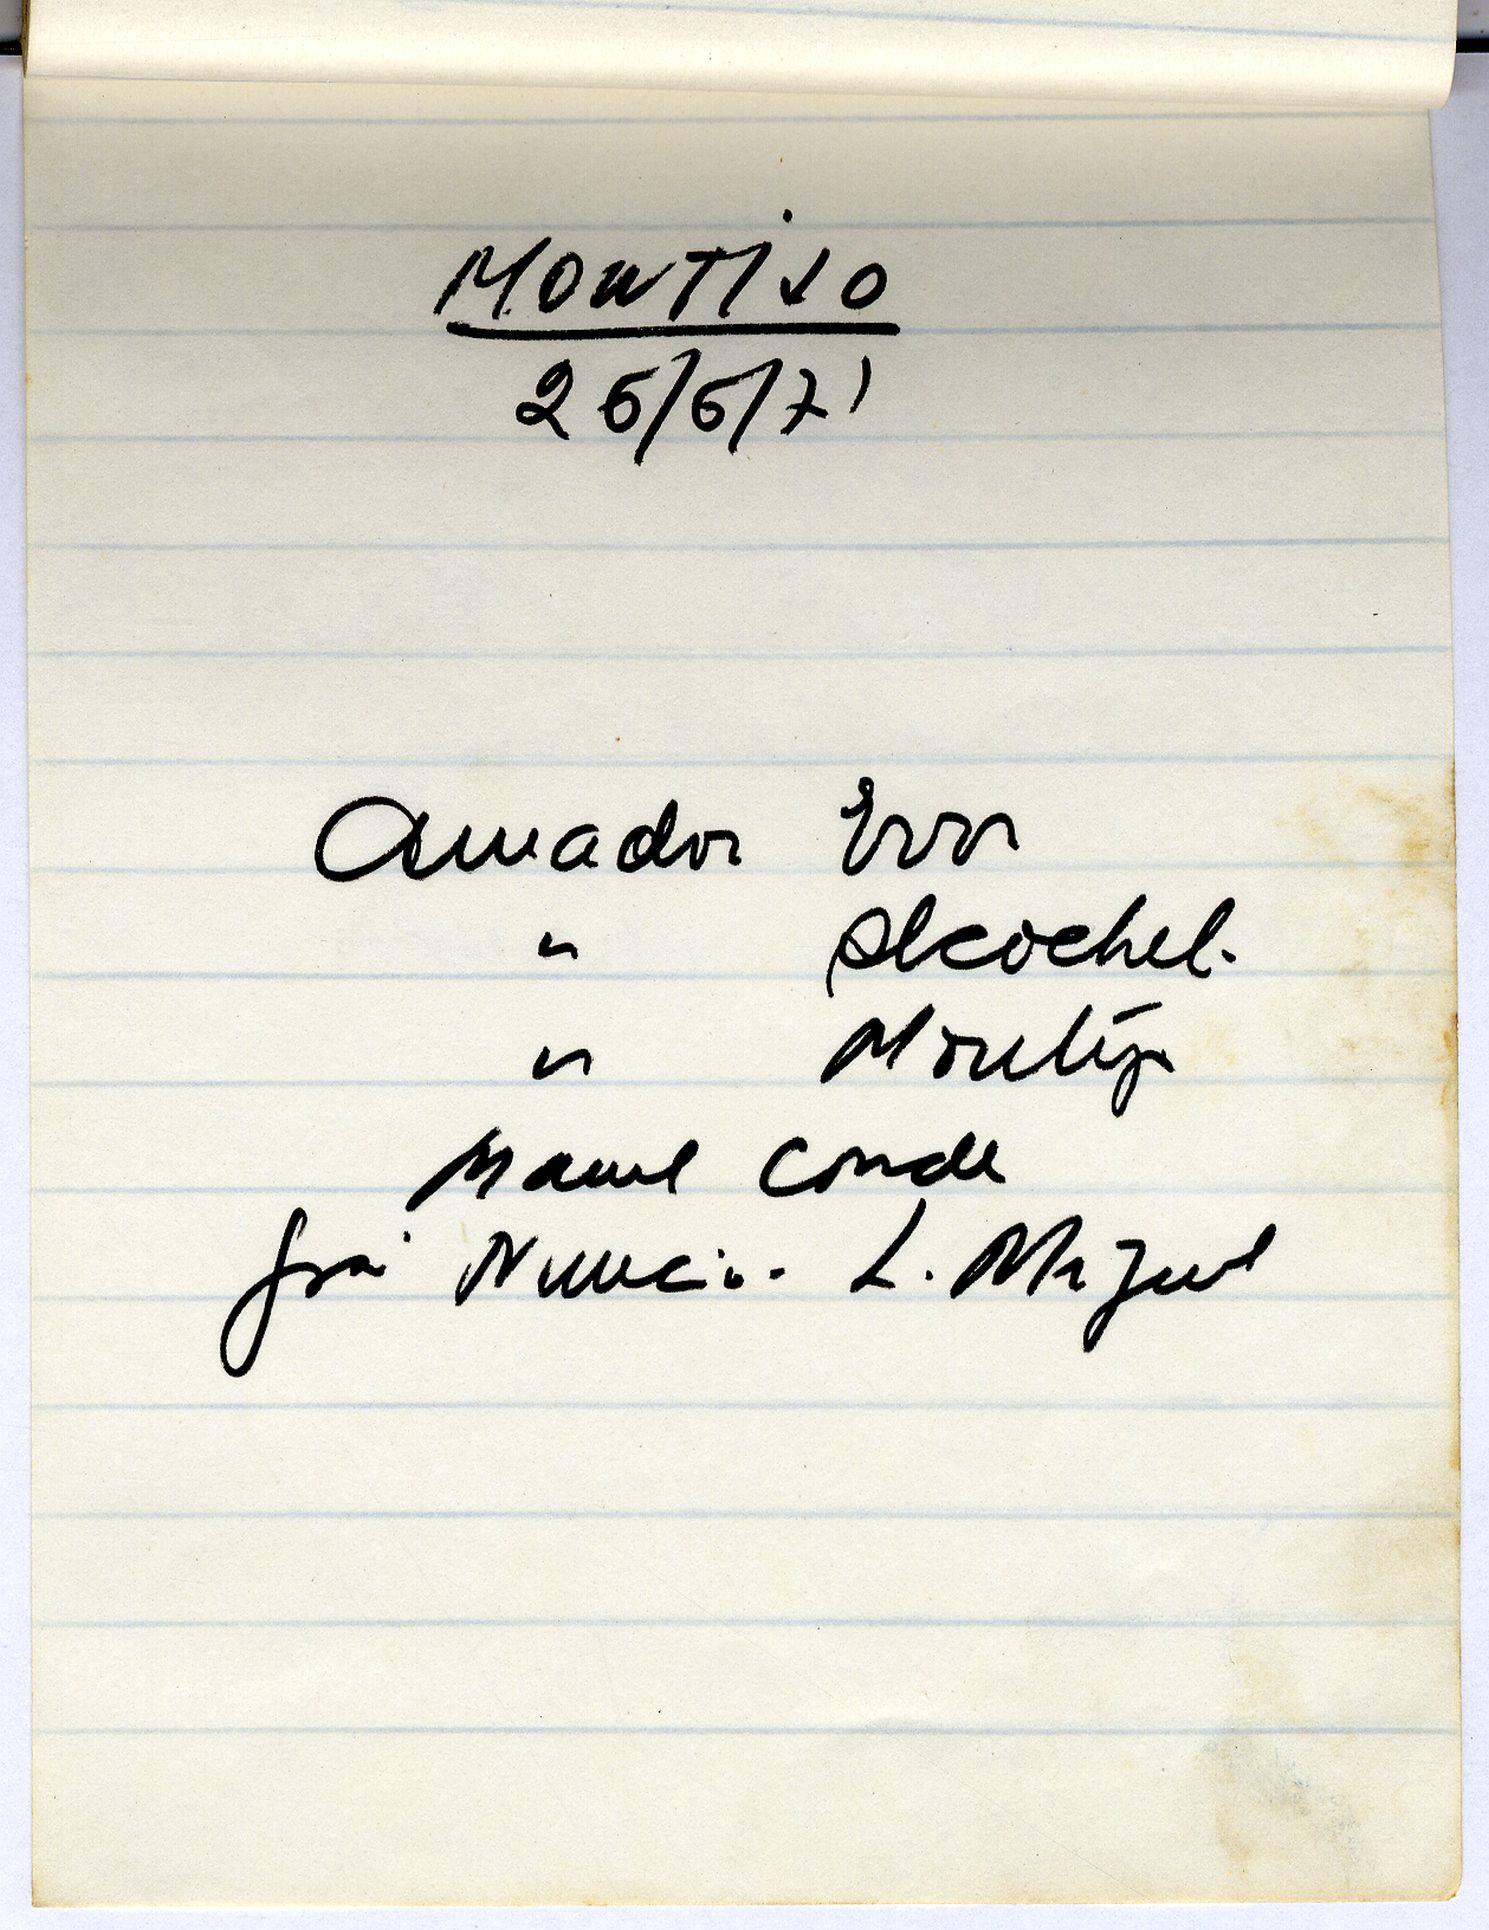 MONTIJO
26/6/71
Amador Evor
" Alcochet.
" Montijo
Manuel Conde
Nuncio. L. Miguel